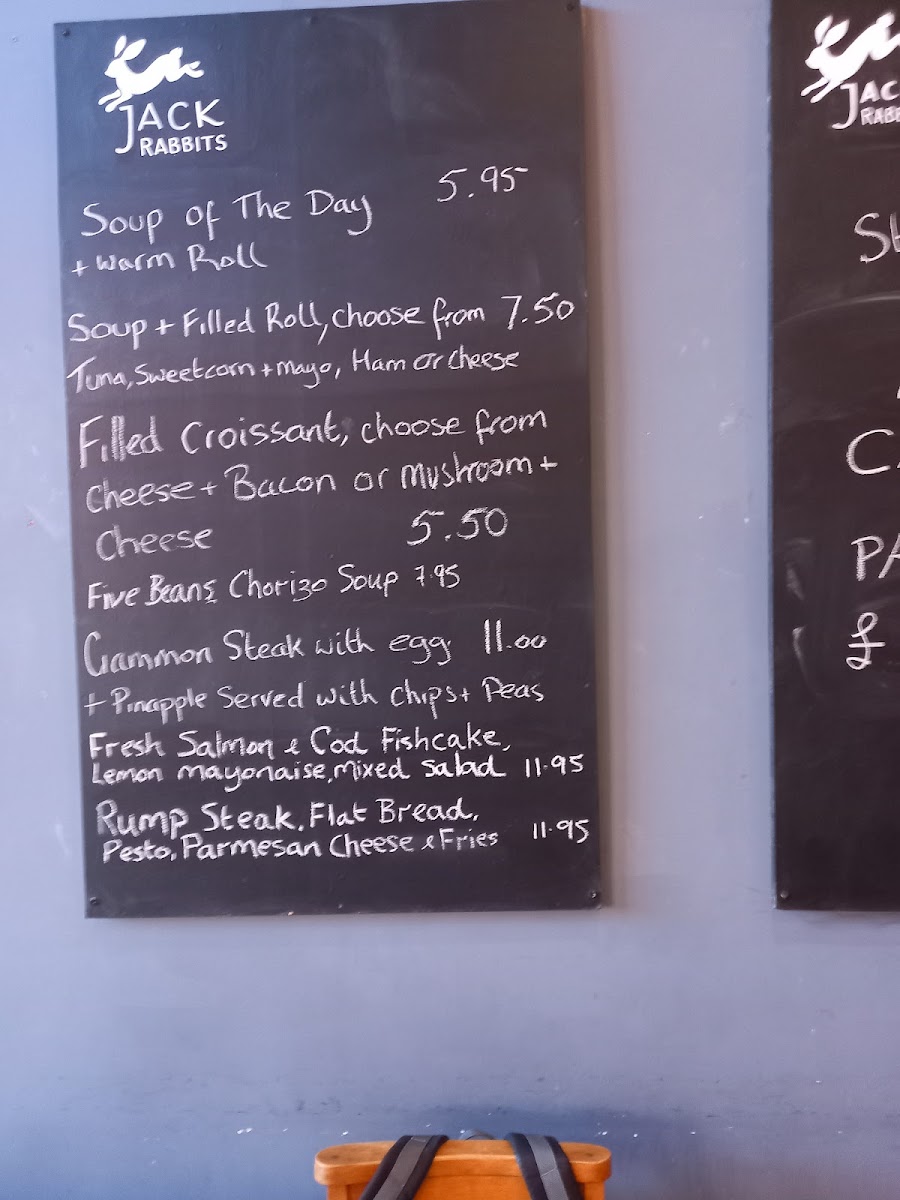 JACK
RABBITS
Soup of The Day 5.95
+ warm Roll
Soup + Filled Roll, choose from 7.50
Tuna, Sweetcorn + mayo, Ham or cheese
Filled Croissant, choose from
cheese + Bacon or mushroom +
Cheese 5.50
Five Beans Chorizo Soup 7.95
Gammon Steak with egg 11.00
+ Pinapple Served with chips + Peas
Fresh Salmon & Cod Fishcake,
Lemon mayonaise, mixed salad 11.95
Rump Steak, Flat Bread,
Pesto, Parmesan Cheese & Fries 11.95
JAC
RABB
S
CA
PA
£